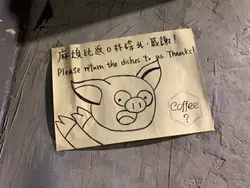 麻煩比返D杯碟我,感謝!
Please return the dishes to us. Thanks!
Coffee
?